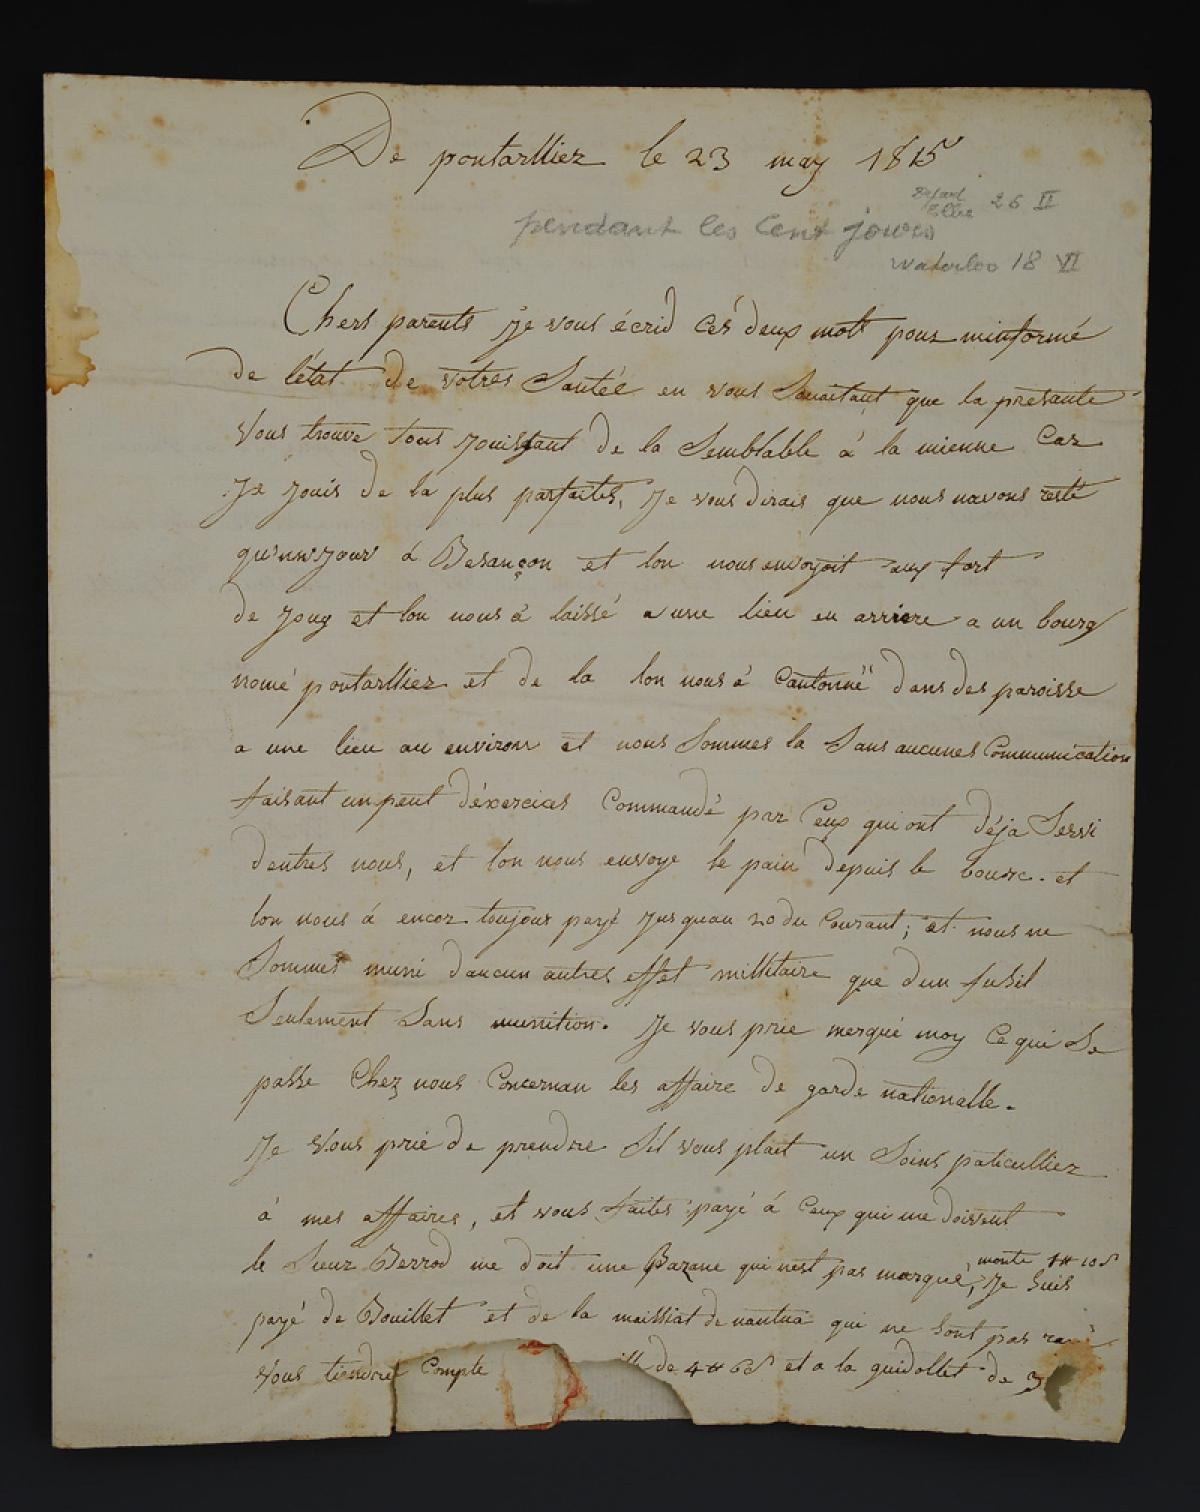 De pontarlliez le 23 may 1815
départ Elbe 26 II
pendant les Cent jours
Waterloo 18 VI
Chers parents je vous écrid ces deux mots pour minformé
de létat de votres Santéé en vous Souaitant que la présante
Vous trouve tous jouissant de la Semblable à la mienne Car
Je jouis de la plus parfaites, Je vous dirais que nous navons resté
qu'un jour à Besançon et lon nous envoyoit aux fort
de Joug et lon nous à laissé a une lieu en arriere a un bourg
nomé pontarlliez et de la lon nous à Cantonné dans des paroisse
a une lieu au environ et nous Sommes la Sans aucunes Communication
faisant un peut déxercices Commandé par Ceux qui ont déja Servi
dentres nous, et lon nous envoye le pain depuis le bourc. et
lon nous à encor toujour payé jusquau 20 du Courant; et nous ne
Sommes muni daucun autres effet millitaire que dun fusil
Seulement Sans munition. Je vous prie merqué moy Ce qui Se
passe Chez nous Concernan les affaire de garde nationalle.
Je Vous prie de prendre Sil vous plait un Soins paticulliez
à mes affaires, et vous faites payé à Ceux qui me doivent
le Sieur Berrod me doit une Bazane qui nest pas marqué, monte 4# 10s Je Suis
payé de Bouillet et de la mailliat de nantua qui ne Sont pas
Vous tiendrez Compte de 4# 6s et a la guidollet de 3